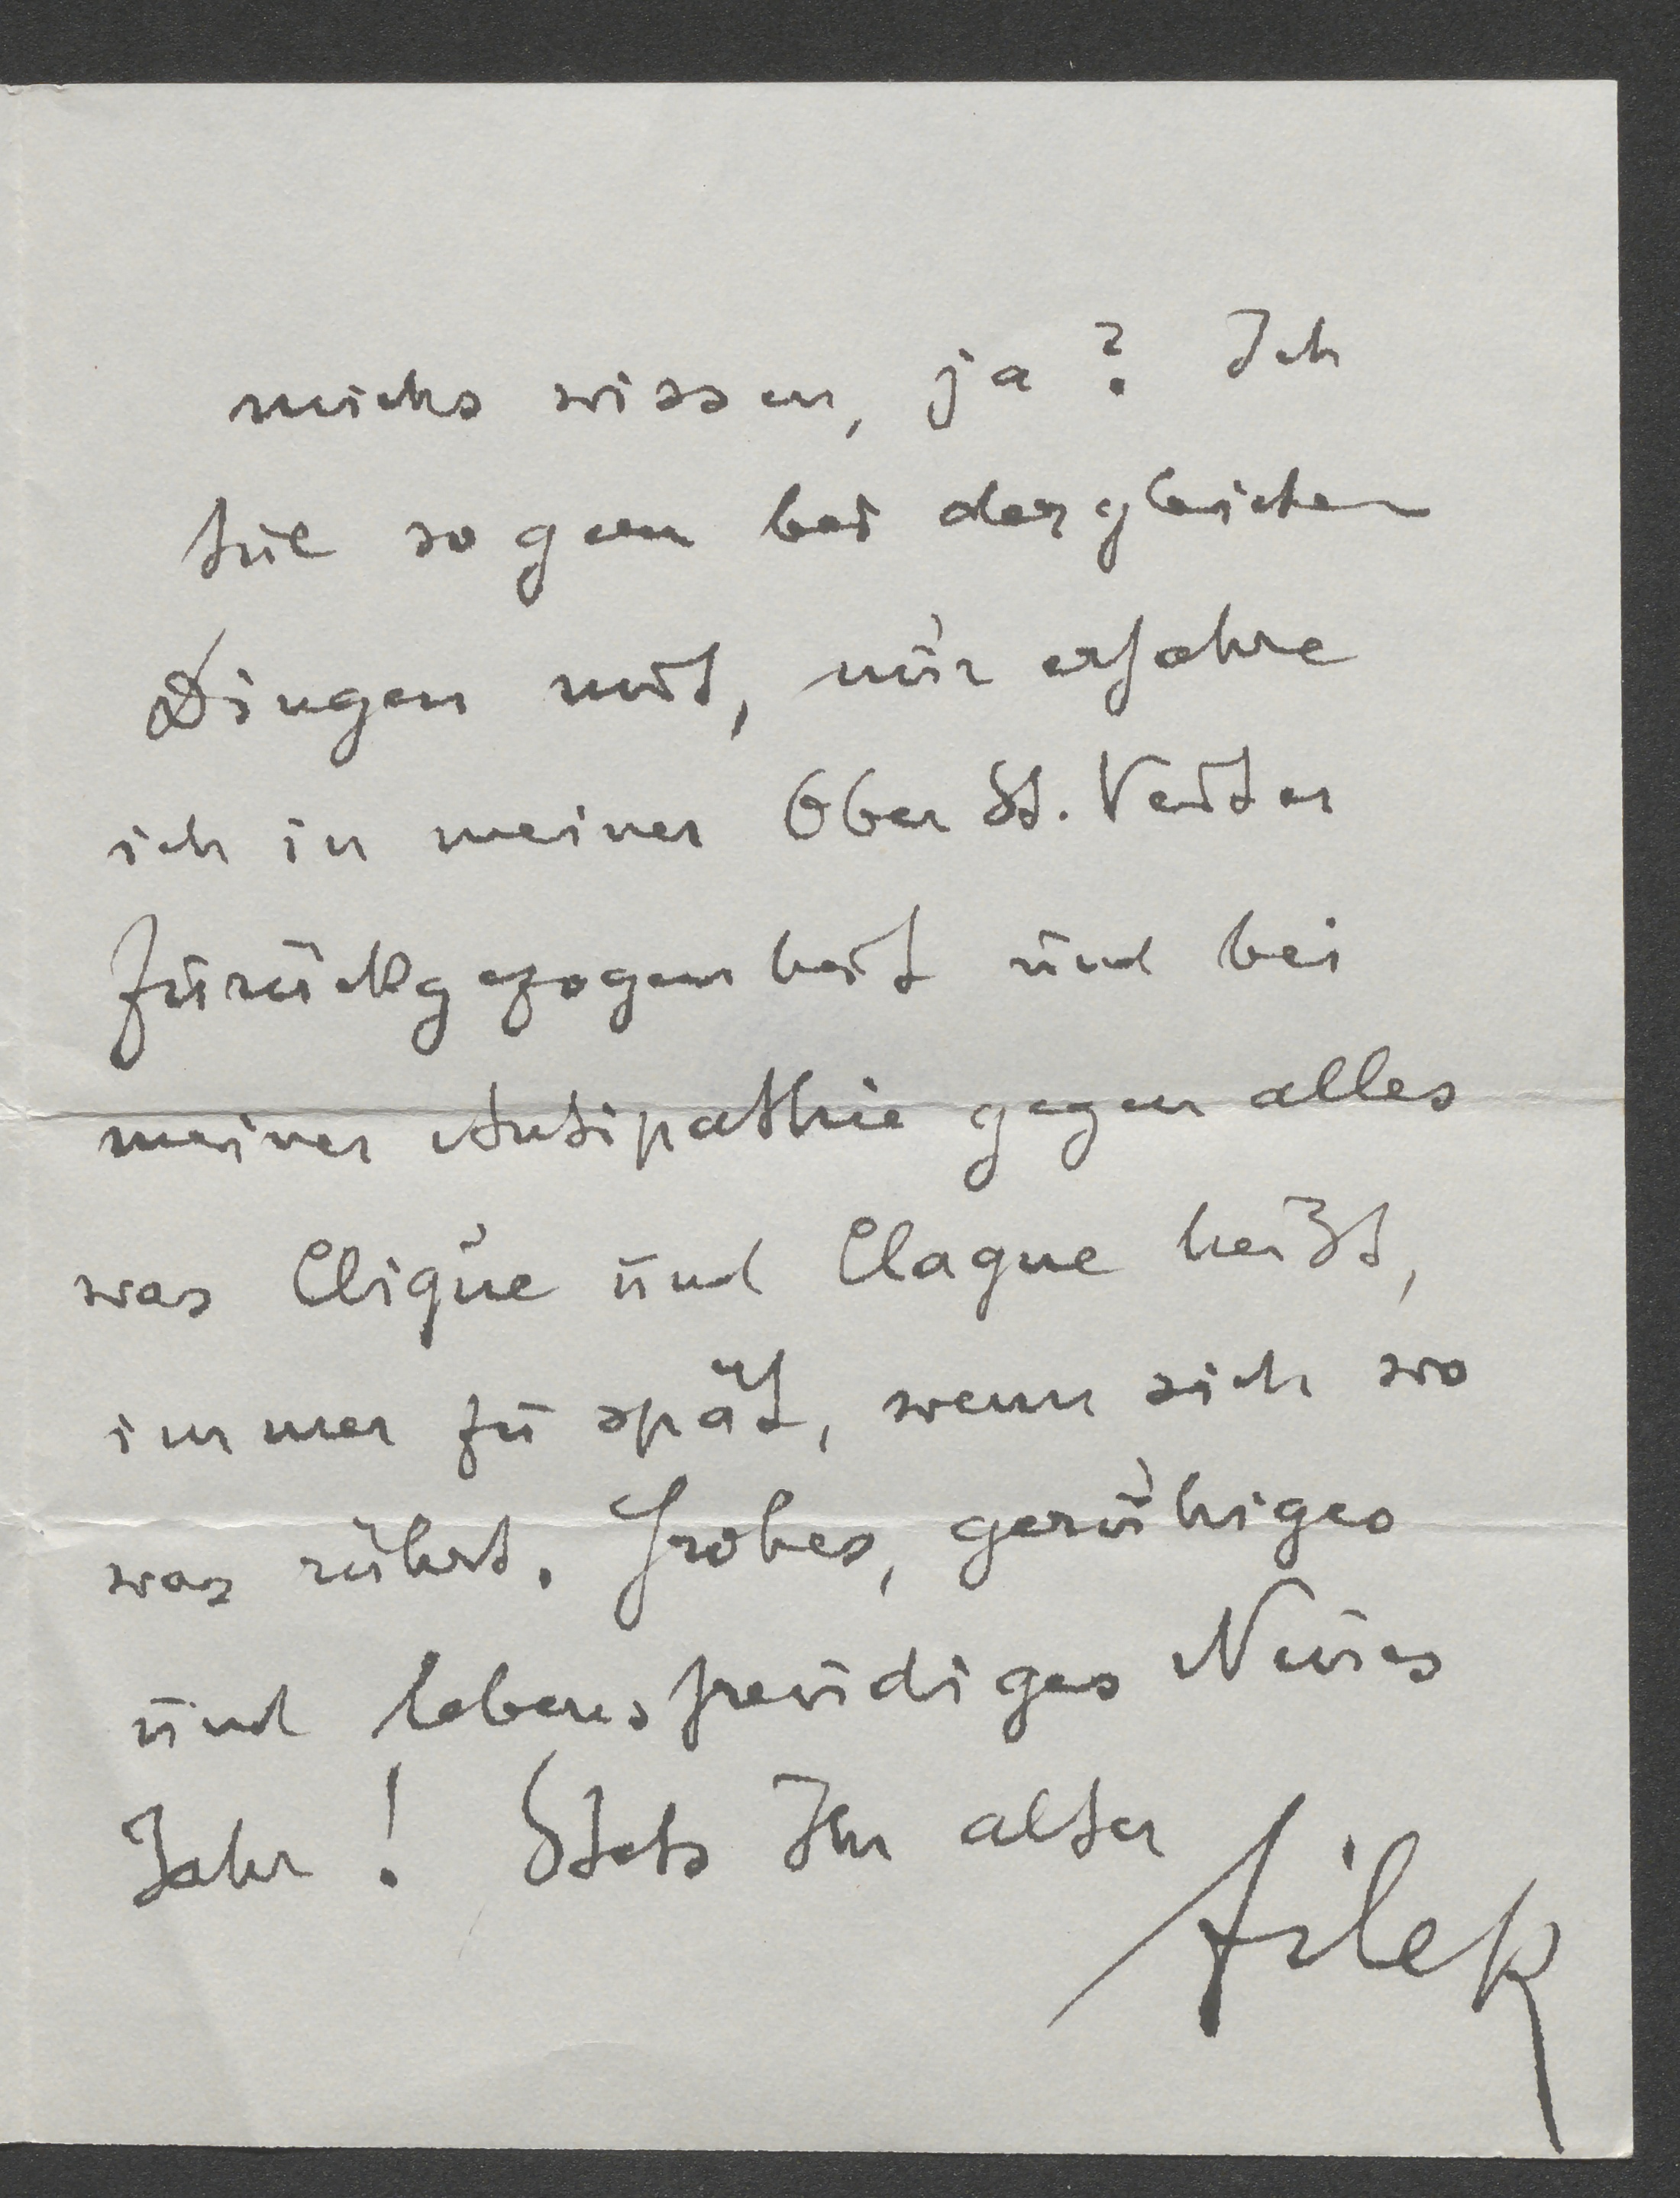 michs wissen, ja? Ich
tue so gern bei dergleichen
Dingen mit, nur erfahre
ich in meiner Ober St. Veiter
Zurückgezogenheit und bei
meiner Antipathie gegen alles
was Clique und Claque heißt,
immer zu spät, wenn sich wo
was rührt. Frohes, geruhiges
und lebensfreudiges Neues
Jahr! Stets Ihr alter
Filek